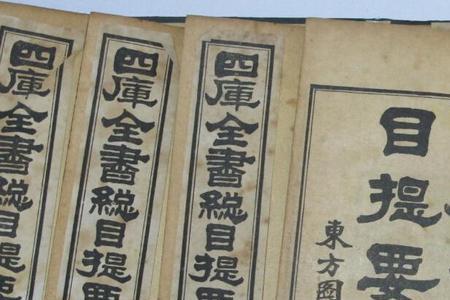 目提要
東方圖
四庫全書総目提要
四庫全書総目提要
四庫全書総目提要